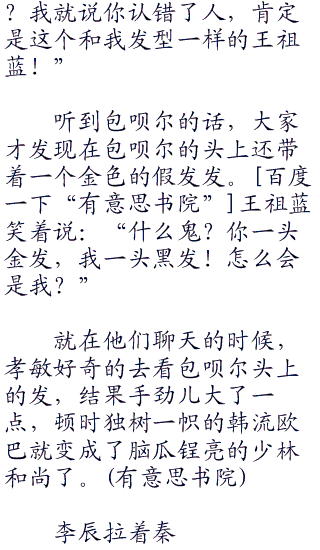 ？我就说你认错了人，肯定
是这个和我发型一样的王祖
蓝！”
听到包呗尔的话，大家
才发现在包呗尔的头上还带
着一个金色的假发发。[百度
一下“有意思书院”]王祖蓝
笑着说：“什么鬼？你一头
金发，我一头黑发！怎么会
是我？”
就在他们聊天的时候，
孝敏好奇的去看包呗尔头上
的发，结果手劲儿大了一
点，顿时独树一帜的韩流欧
巴就变成了脑瓜锃亮的少林
和尚了。(有意思书院)
李辰拉着秦